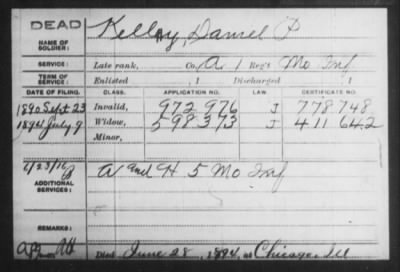 DEAD
NAME OF SOLDIER: Kelley, Daniel P
SERVICE: Late rank, Co. A, 1 Reg't Mo Inf
TERM OF SERVICE: Enlisted , 1 Discharged , 1
DATE OF FILING. CLASS. APPLICATION NO. LAW. CERTIFICATE NO.
1890 Sept 23 Invalid, 972 976 J 778 748
1894 July 9 Widow, 598 373 J 411 642
Minor,
ADDITIONAL SERVICES: A and H 5 Mo Inf
REMARKS:
Died June 28, 1894, at Chicago, Ill